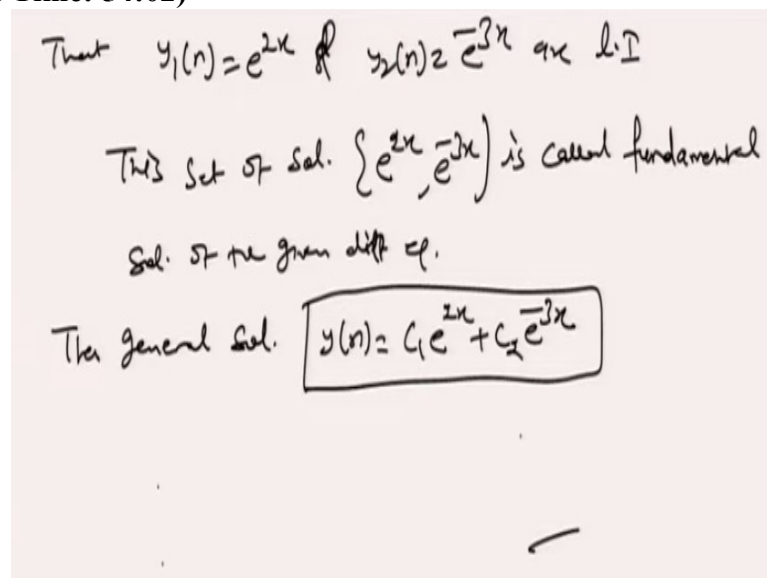 That y₁(n) = e^{2x} & y₂(n) = e^{-3x} are l.I
This set of sol. {e^{2x}, e^{-3x}} is called fundamental
sol. of the given diff eq.
The general sol. y(n) = C₁e^{2x} + C₂e^{-3x}